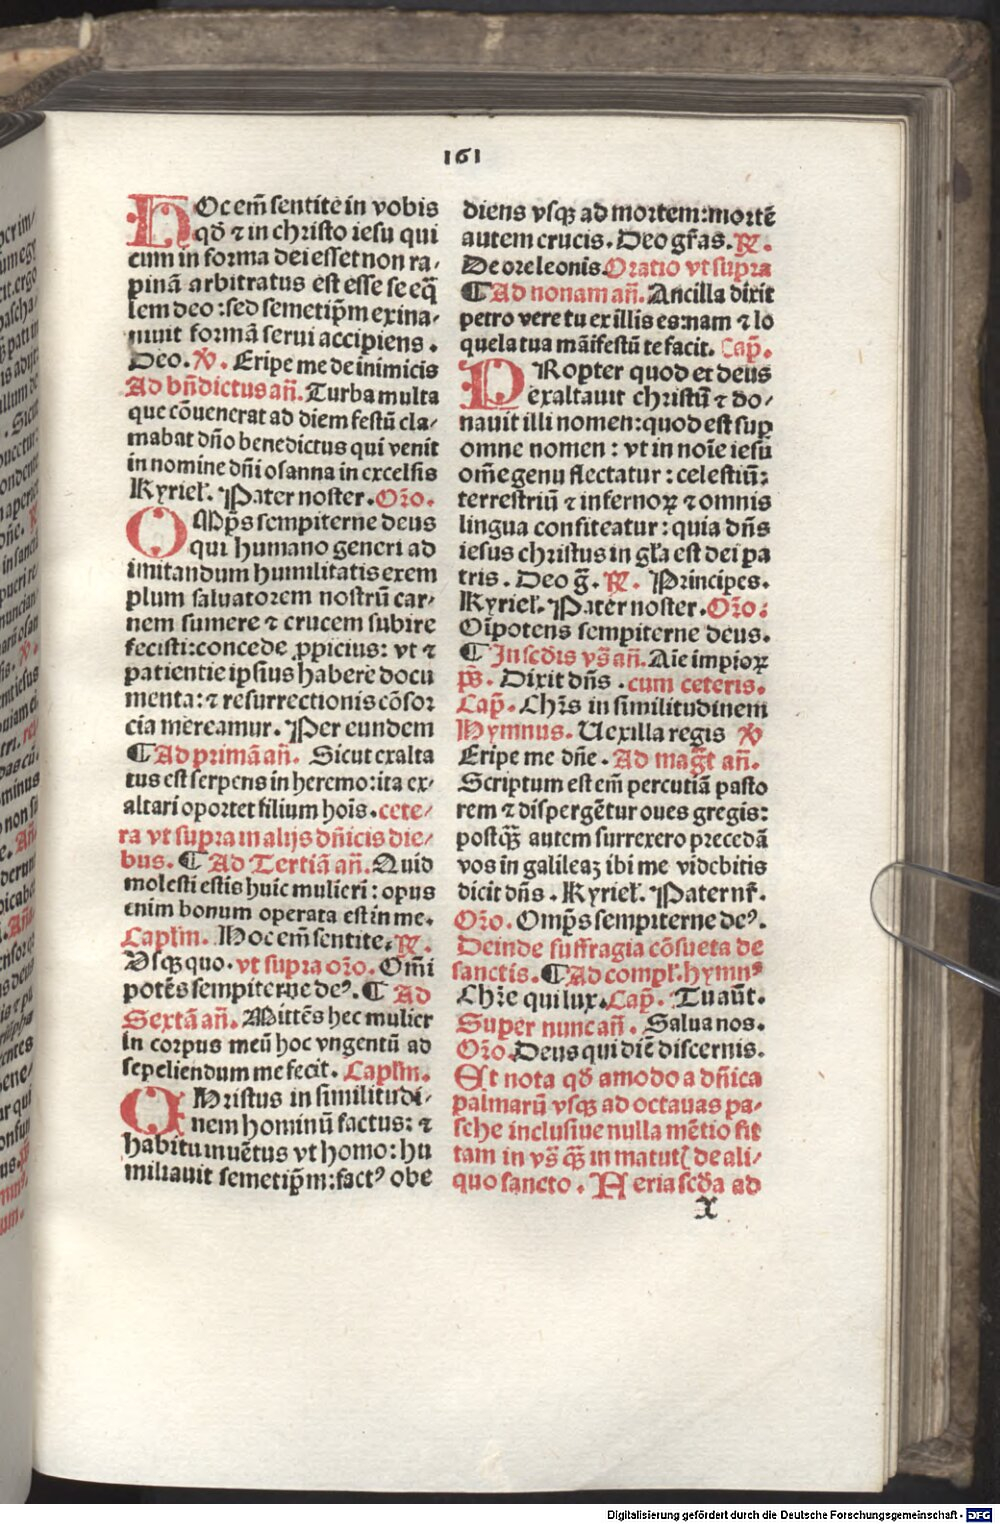 161
HOc em̄ sentite in vobis
qđ ⁊ in christo iesu qui
cum in forma dei esset non ra⸗
pinā arbitratus est esse se eq̄
lem deo : sed semetip̄m exina⸗
niuit formā serui accipiens .
Deo. ℣. Eripe me de inimicis
Ad bn̄dictus an̄. Turba multa
que cōuenerat ad diem festū cla⸗
mabat dn̄o benedictus qui venit
in nomine dn̄i osanna in excelsis
Kyrieł. Pater noster . Or̄o.
OMp̄s sempiterne deus
qui humano generi ad
imitandum humilitatis exem
plum saluatorem nostrū car⸗
nem sumere ⁊ crucem subire
fecisti : concede ꝓpicius : vt ⁊
patientie ipsius habere docu
menta : ⁊ resurrectionis cōsor
cia mereamur . Per eundem
¶ Ad primā an̄. Sicut exalta
tus est serpens in heremo : ita ex⸗
altari oportet filium hoīs . cete⸗
ra vt supra in alijs dn̄icis die⸗
bus. ¶ Ad Tertiā an̄. Quid
molesti estis huic mulieri : opus
enim bonum operata est in me.
Capl̄m. Hoc em̄ sentite. ℟.
Vsqꝫ quo . vt supra or̄o. Om̄i
potēs sempiterne deꝰ. ¶ Ad
Sextā an̄. Mittēs hec mulier
in corpus meū hoc vngentū ad
sepeliendum me fecit . Capl̄m.
CHristus in similitudi⸗
nem hominū factus : ⁊
habitu inuētus vt homo : hu
miliauit semetip̄m : factꝰ obe
diens vsqꝫ ad mortem : mortē
autem crucis . Deo gr̄as. ℟.
De ore leonis. Oratio vt supra
¶ Ad nonam an̄. Ancilla dixit
petro vere tu ex illis es : nam ⁊ lo
quela tua māifestū te facit . Cap̄.
PRopter quod et deus
exaltauit christū ⁊ do⸗
nauit illi nomen : quod est sup̄
omne nomen : vt in noīe iesu
om̄e genu flectatur : celestiū :
terrestriū ⁊ infernoꝝ ⁊ omnis
lingua confiteatur : quia dn̄s
iesus christus in gl̄a est dei pa
tris . Deo ḡ. ℟. Principes.
Kyrieł. Pater noster . Or̄o :
Oīpotens sempiterne deus.
¶ In sedis vs̄ an̄. Aīe impioꝝ
ps̄. Dixit dn̄s . cum ceteris.
Cap̄. Chr̄s in similitudinem
Hymnus. Uexilla regis ℣
Eripe me dn̄e . Ad mag̅t an̄.
Scriptum est em̄ percutiā pasto
rem ⁊ dispergētur oues gregis :
postqꝫ̄ autem surrexero precedā
vos in galileaꝫ ibi me videbitis
dicit dn̄s . Kyrieł. Pater nr̄.
Or̄o. Omp̄s sempiterne deꝰ.
Deinde suffragia cōsueta de
sanctis. ¶ Ad compl̄. hymnꝰ
Chr̄e qui lux. Cap̄. Tu aūt.
Super nunc an̄ . Salua nos.
Or̄o. Deus qui diē discernis.
Et nota qđ amodo a dn̄ica
palmarū vsqꝫ ad octauas pa⸗
sche inclusiue nulla mētio fit
tam in vs̄ qꝫ̄ in matuť de ali⸗
quo sancto . Feria scd̄a ad
x
Digitalisierung gefördert durch die Deutsche Forschungsgemeinschaft - DFG